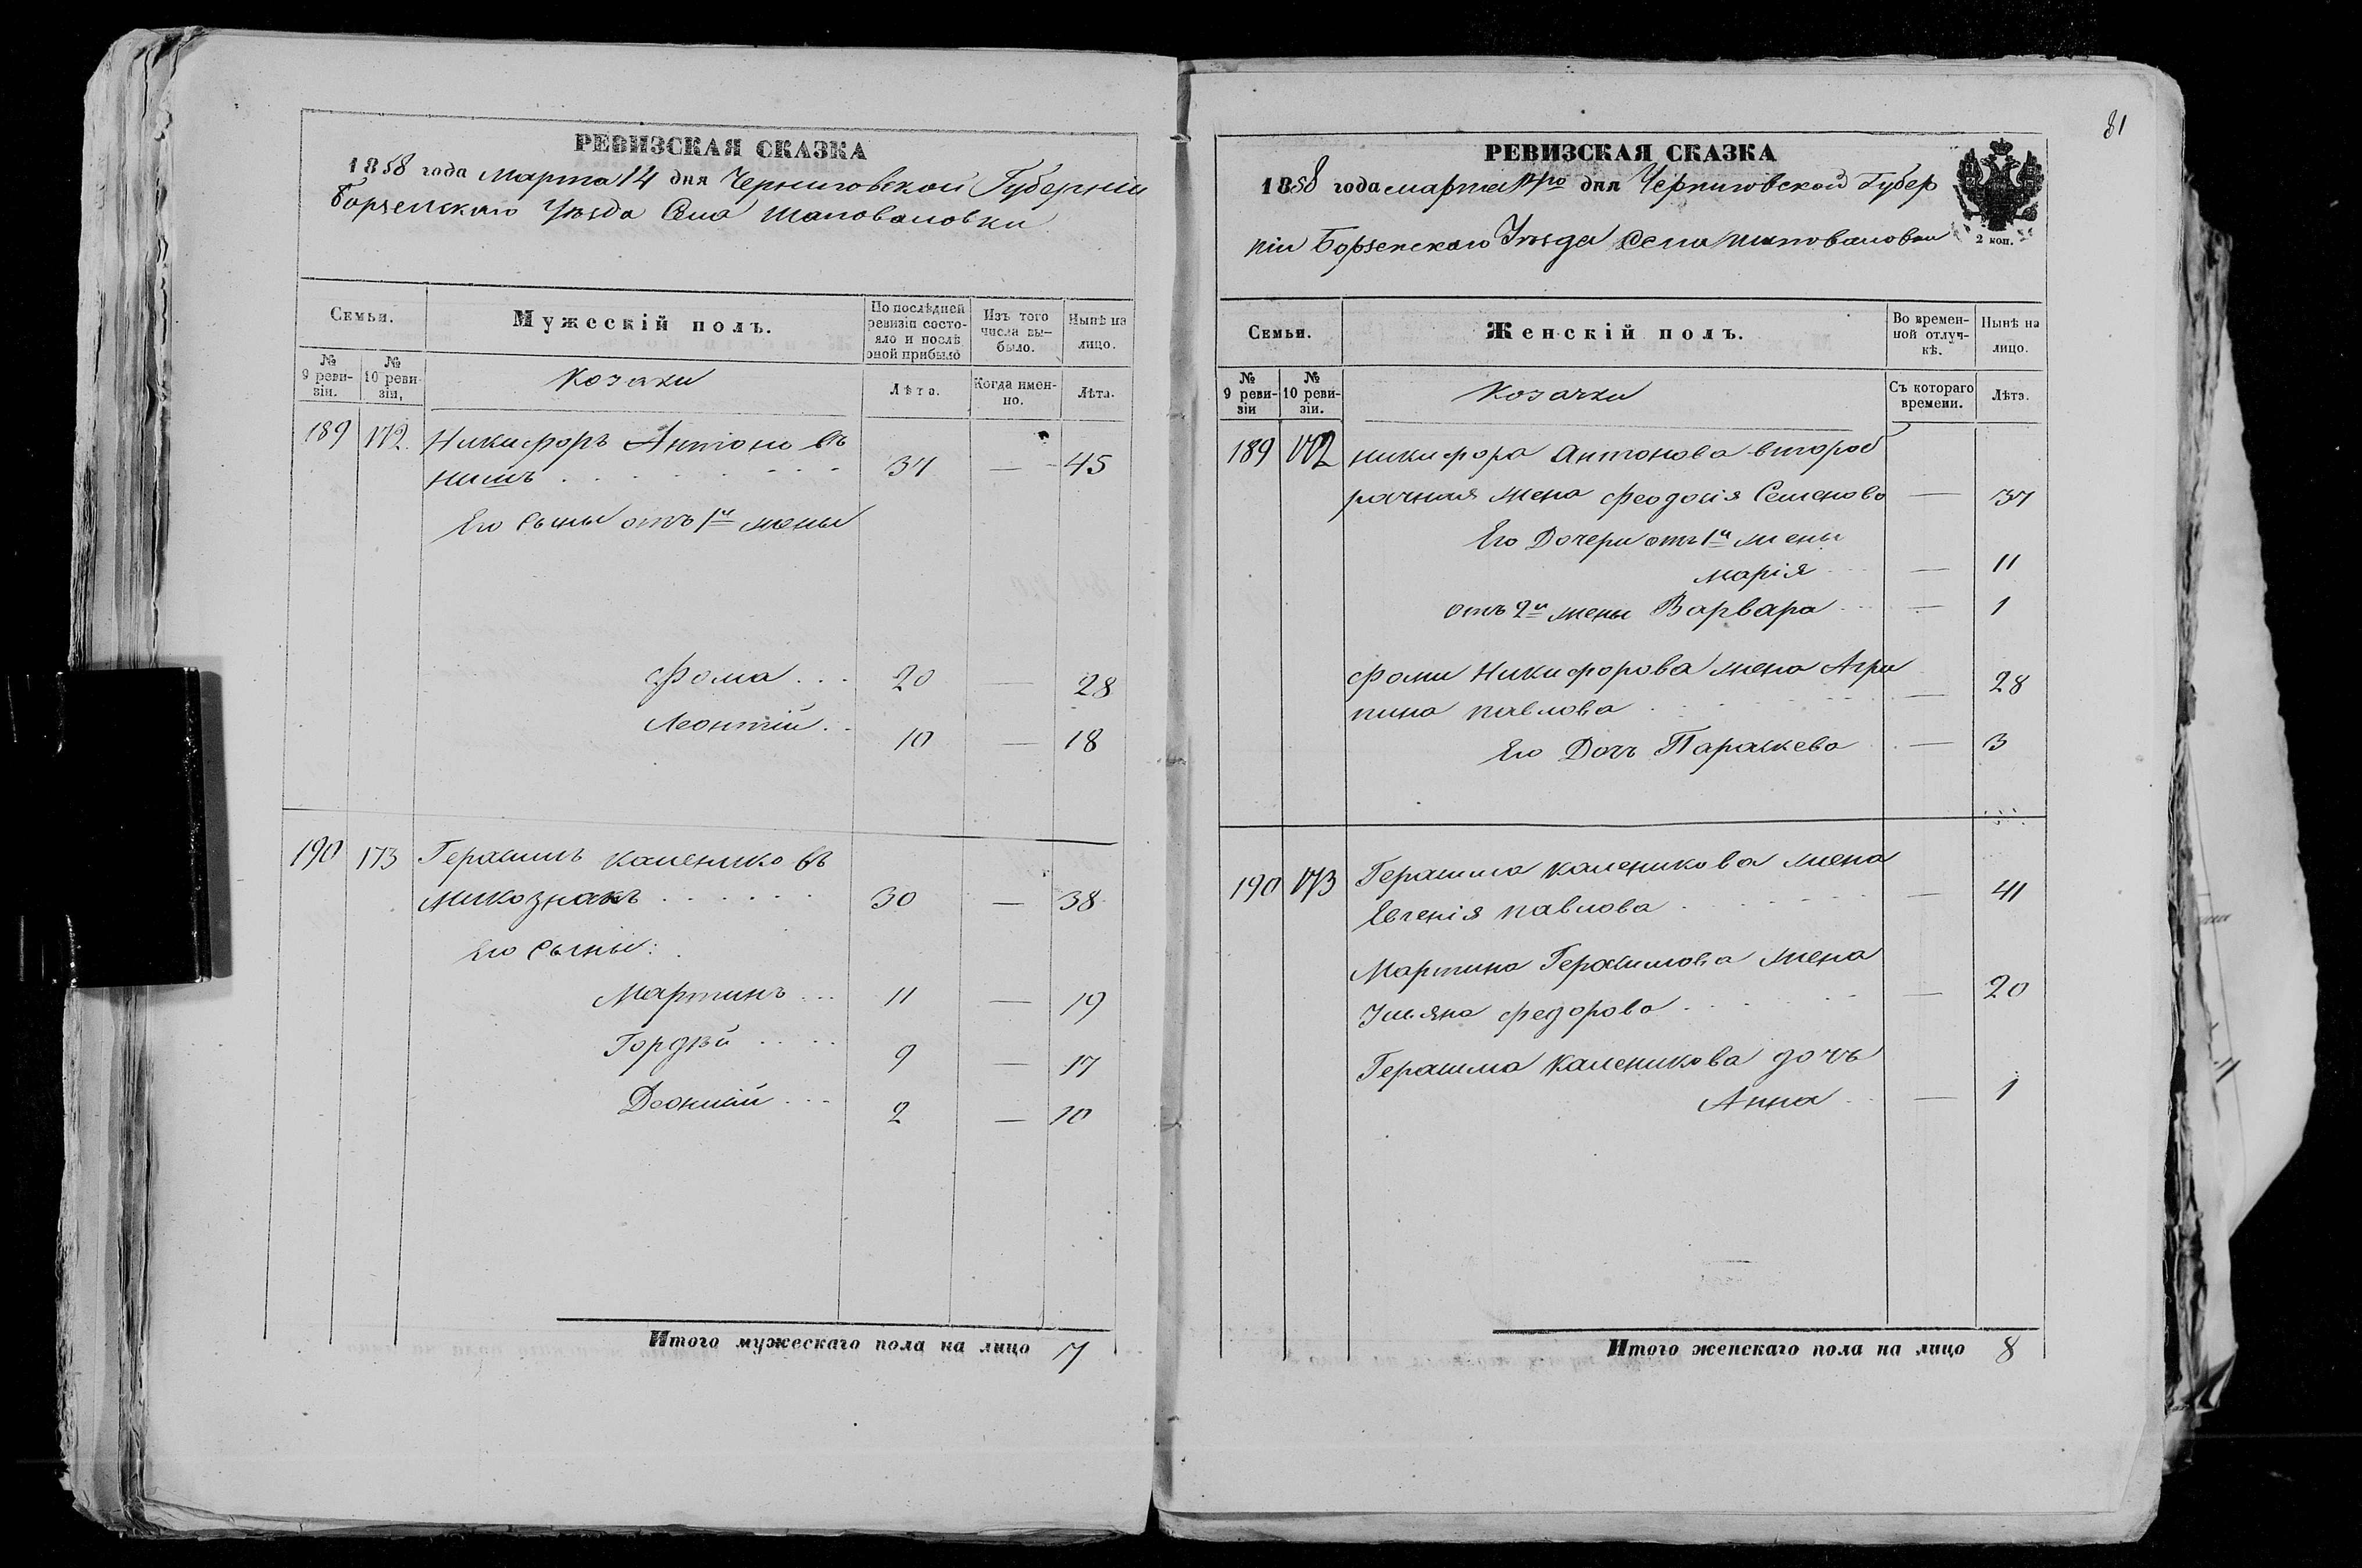 РЕВИЗСКАЯ СКАЗКА
1858 года Марта 14 дня Черниговской Губерніи
Борзенского Уѣзда Села Шаповаловки
Семьи.
Мужескій полъ.
По послѣдней ревизіи состояло и послѣ оной прибыло
Изъ того числа выбыло.
Нынѣ на лицо.
№ 9 ревизіи.
№ 10 ревизіи,
Козаки
Лѣта.
Когда именно.
Лѣта.
189 172. Никифоръ Антоновъ
37 — 45
Его Сыны отъ 1й жены
Фома ... 20 — 28
Леонтій .. 10 — 18
190 173 Герасимъ Калениковъ
30 — 38
Его Сыны:
Мартинъ ... 11 — 19
Гордѣй .... 9 — 17
2 — 10
Итого мужескаго пола на лицо 7
81
РЕВИЗСКАЯ СКАЗКА
1858 года марта дня Черниговской Губер
ніи Борзенскаго Уѣзда Села Шаповаловки
2 коп.
Семьи.
Женскій полъ.
Во временной отлучкѣ.
Нынѣ на лицо.
№ 9 ревизіи
№ 10 ревизіи.
Козачки
Съ котораго времени.
Лѣта.
189 172 Никифора Антонова второб
рачная жена Феодосія Семенова — 37
Его Дочери отъ 1й жены
Марія — 11
отъ 2й жены Варвара — 1
Фомы Никифорова жена Агри
пина Павлова — 28
Его Дочъ Параскева — 3
190 173 Герасима Каленикова жена
Евгенія Павлова — 41
Мартина Герасимова жена
Ульяна Федорова — 20
Герасима Каленикова дочъ
Анна — 1
Итого женскаго пола на лицо 8